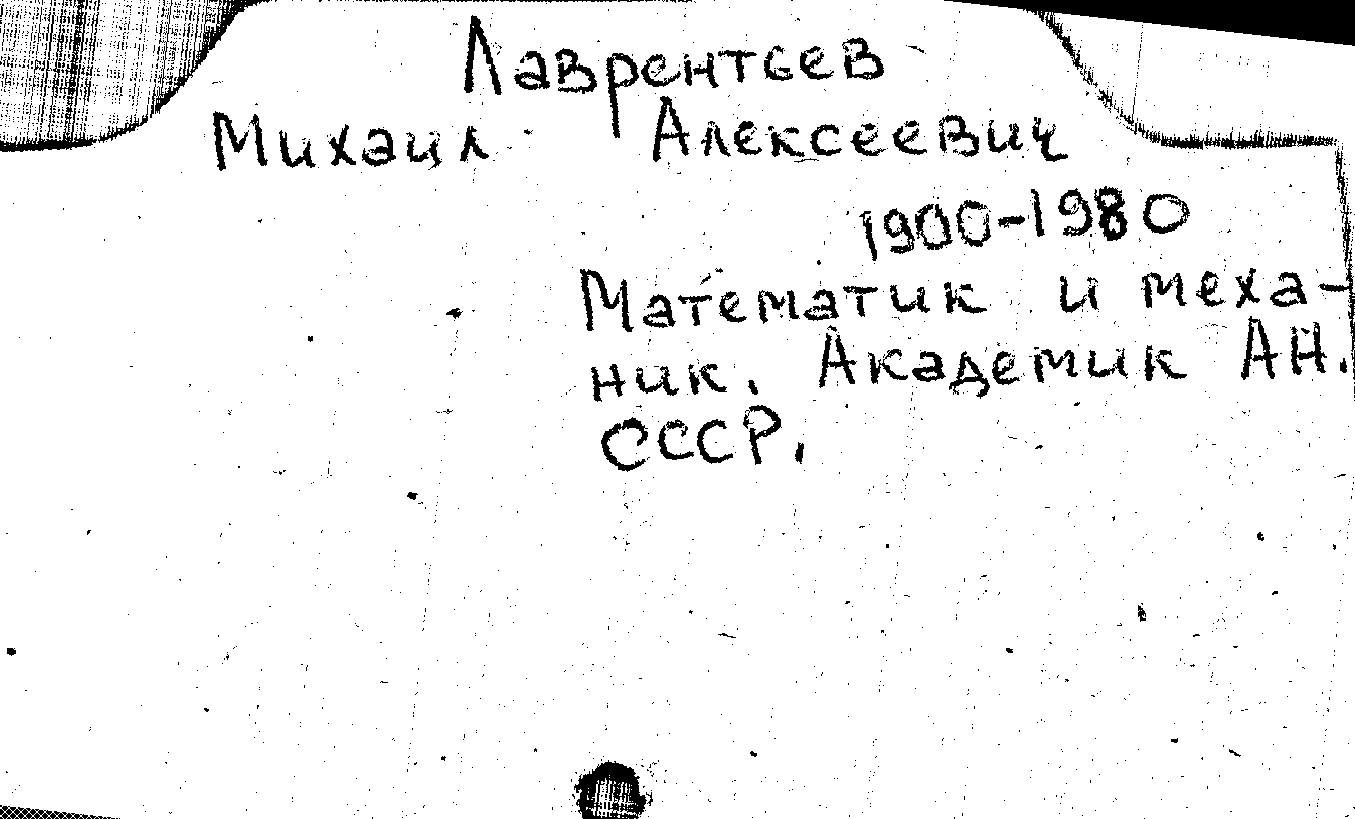 Лаврентьев
Михаил Алексеевич
1900-1980
Математик и меха-
ник. Академик АН.
СССР.